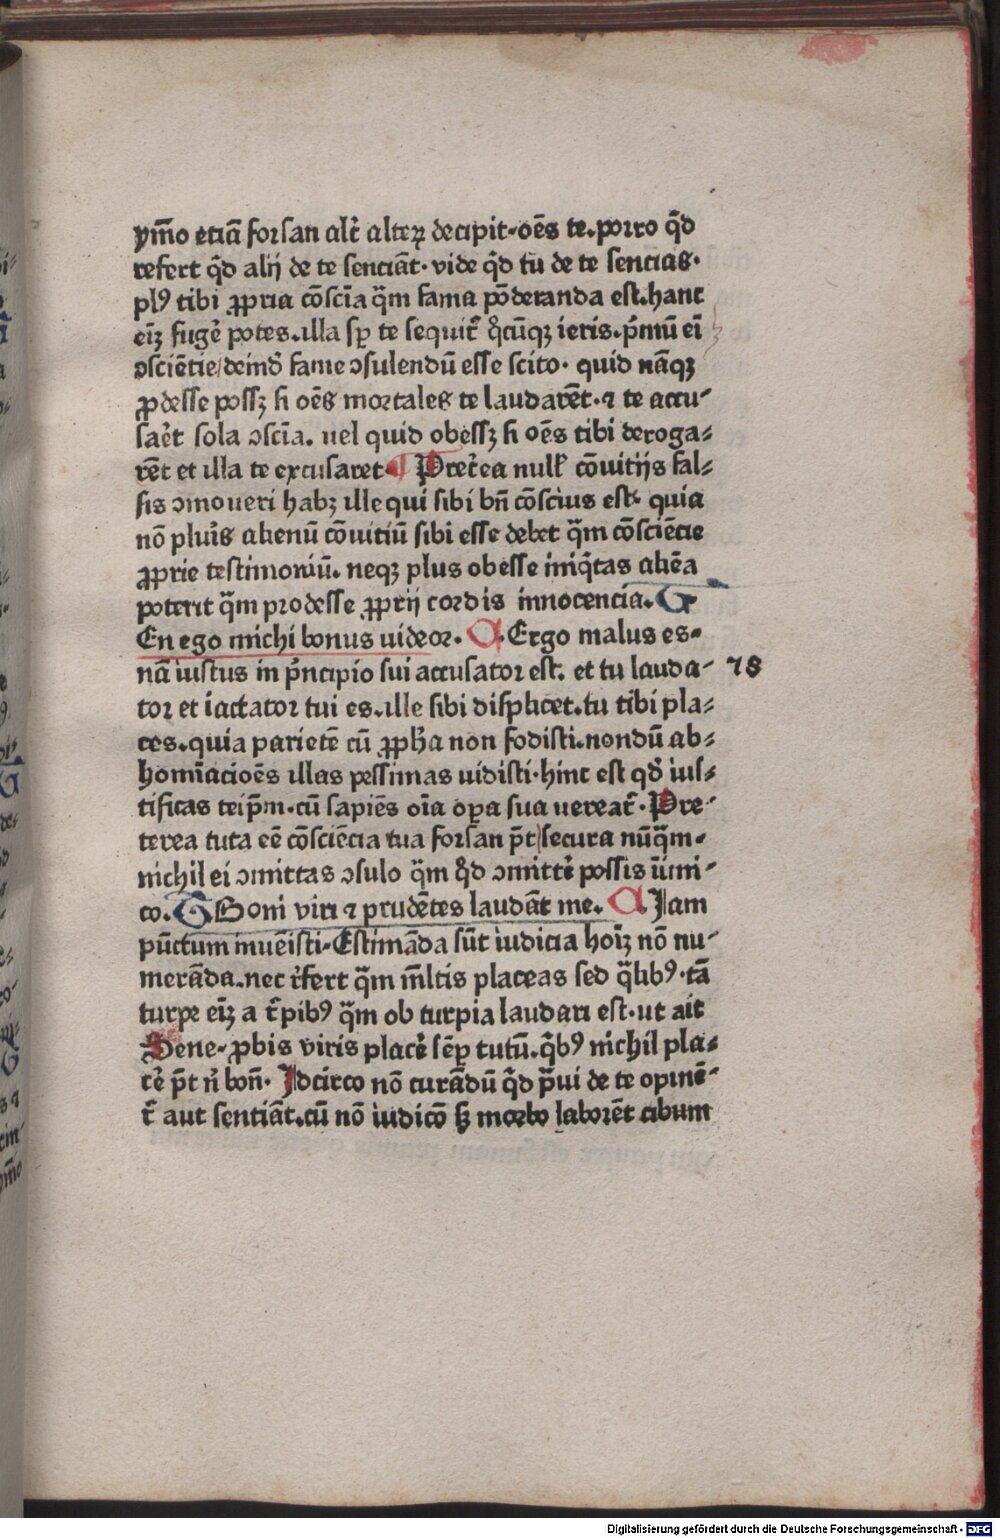 ym̄o etiā forsan alt̄ alteꝝ decipit·oēs te.porro qd̄
refert qd̄ alij de te senciāt·vide qd̄ tu de te sencias·
plꝰ tibi ꝓpria cōscīa q̄m fama pōderanda est.hanc
eīꝫ fugē potes.illa sꝑ te sequit̄ q̄cūqꝫ ieris.pᷓmū eī
ꝯsciētie/deinđ fame ꝯsulendū esse scito· quid nāqꝫ
ꝓdesse possꝫ si oēs mortales te laudarēt·⁊ te accu-
saēt sola ꝯscīa. uel quid obessꝫ si oēs tibi deroga-
rēt et illa te excusaret¶ Pret̄ea null̄ cōuitijs fal-
sis ꝯmoueri habꝫ ille qui sibi bn̄ cōscius est· quia
nō plur̄s alienū cōuitiū sibi esse debet q̄m cōsciētie
ꝓprie testimoniū. neqꝫ plus obesse iniq̄tas aliēa
poterit q̄m prodesse ꝓprij cordis innocencia. G·
En ego michi bonus uideor. A.Ergo malus es-
nā iustus in pᷓncipio sui accusator est. et tu lauda- 78
tor et iactator tui es.ille sibi displicet.tu tibi pla-
ces.quia parietē cū ꝓph̄a non fodisti.nondū ab-
homīacioēs illas pessimas uidisti·hinc est qđ ius-
tificas teip̄m.cū sapiēs oīa oꝑa sua uereat̄·Pre-
terea tuta eē cōsciēcia tua forsan pt̄/secura nūq̄m·
nichil ei ꝯmittas ꝯsulo q̄m qd̄ ꝯmittē possis inīmi-
co. G Boni viri ⁊ prudētes laudāt me. A.Iam
pūctum inuēisti·Estimāda sūt iudicia hoīꝫ nō nu-
merāda.nec r̄fert q̄m m̄ltis placeas sed q̄libꝰ·tā
turpe eīꝫ a t̄pibꝰ q̄m ob turpia laudari est·ut ait
Sene· ꝓbis viris placē sēꝑ tutū.qᷓbꝰ nichil pla-
cē pt̄ nī̄ bon̄· Idcirco nō curādū qd̄ p̄ui de te opinē-
t̄ aut sentiāt.cū nō iudicō sꝫ morbo laborēt cibum
Digitalisierung gefördert durch die Deutsche Forschungsgemeinschaft - DFG